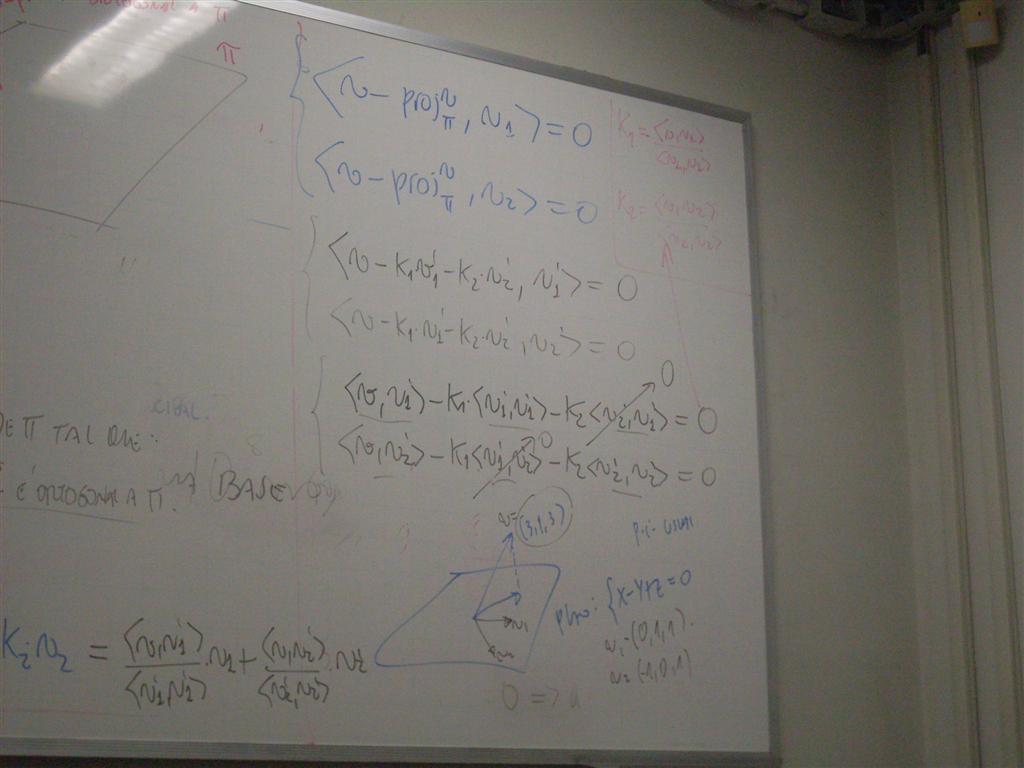 ORTOGONAL A Π
Π
⟨v - proj_Π^v, v₁⟩ = 0
⟨v - proj_Π^v, v₂⟩ = 0
⟨v - K₁v₁' - K₂·v₂', v₁'⟩ = 0
⟨v - K₁·v₁' - K₂·v₂', v₂'⟩ = 0
⟨v,v₁'⟩ - K₁·⟨v₁',v₁'⟩ - K₂⟨v₂',v₁'⟩ = 0
0
⟨v,v₂'⟩ - K₁⟨v₁',v₂'⟩ - K₂⟨v₂',v₂'⟩ = 0
0
K₁ =
K₂ =
DE Π TAL QUE:
É ORTOGONAL A Π.
BASE
v = (3,1,3)
P.i: usual
plano: {X-Y+Z=0
v₁=(0,1,1).
v₂(-1,0,1)
v₁
v₂
K₂·v₂ = ⟨v,v₁'⟩/⟨v₁',v₁'⟩ .v₁ + ⟨v,v₂'⟩/⟨v₂',v₂'⟩ .v₂
0 =>